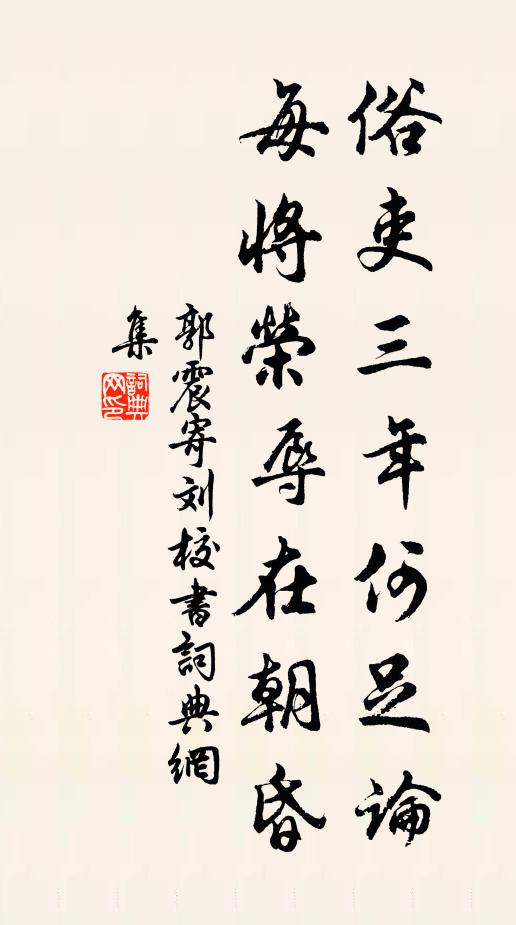 俗吏三年何足論
每將榮辱在朝昏
郭震寄刘校書詞典網
集
詞典网印